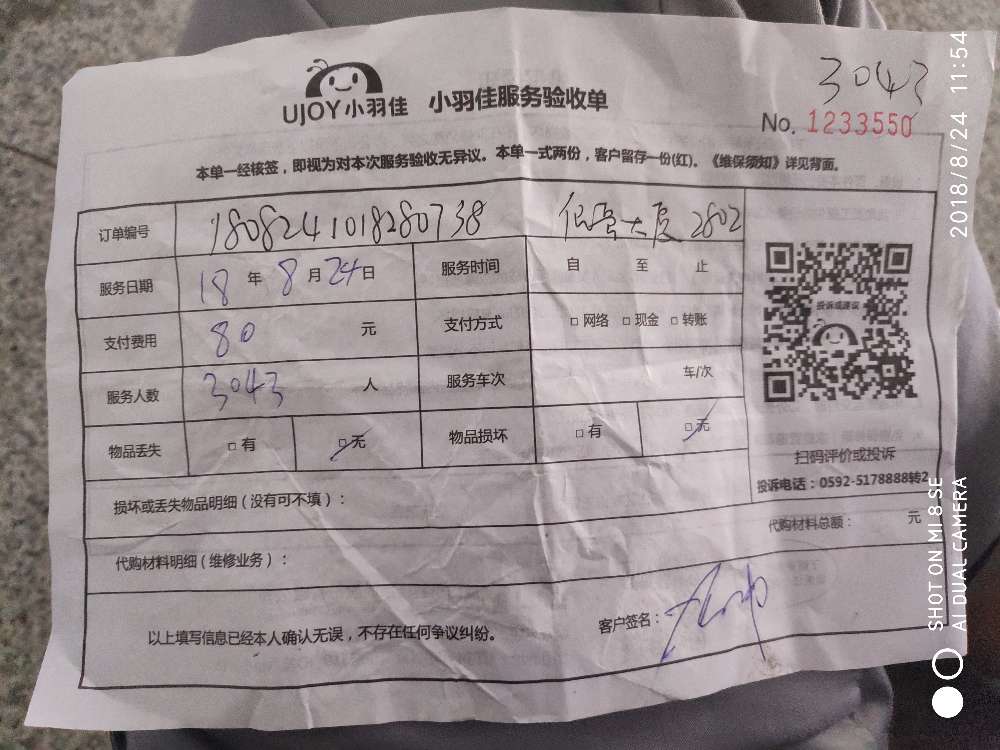 3043
UJOY小羽佳 小羽佳服务验收单
No. 1233550
本单一经核签，即视为对本次服务验收无异议。本单一式两份，客户留存一份(红)。《维保须知》详见背面。
订单编号 1808241018280738 大厦 2802
服务日期 18 年 8 月 24 日 服务时间 自 至 止
支付费用 80 元 支付方式 □ 网络 □ 现金 □ 转账
服务人数 3043 人 服务车次 车/次
物品丢失 □ 有 □ 无 物品损坏 □ 有 □ 无
投诉或建议
扫码评价或投诉
投诉电话：0592-5178888转2
损坏或丢失物品明细（没有可不填）：
代购材料总额： 元
代购材料明细（维修业务）：
以上填写信息已经本人确认无误，不存在任何争议纠纷。
客户签名：
2018/8/24 11:54
SHOT ON MI 8 SE
AI DUAL CAMERA